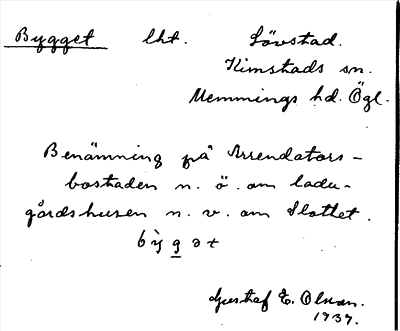 Bygget lht. Lövstad.
Kimstads sn.
Memmings hd. Ögl.
Benämning på Arrendators-
bostaden n. ö. om ladu-
gårdshusen n. v. om Slottet.
by̆gət
Gustaf E. Olsson.
1937.